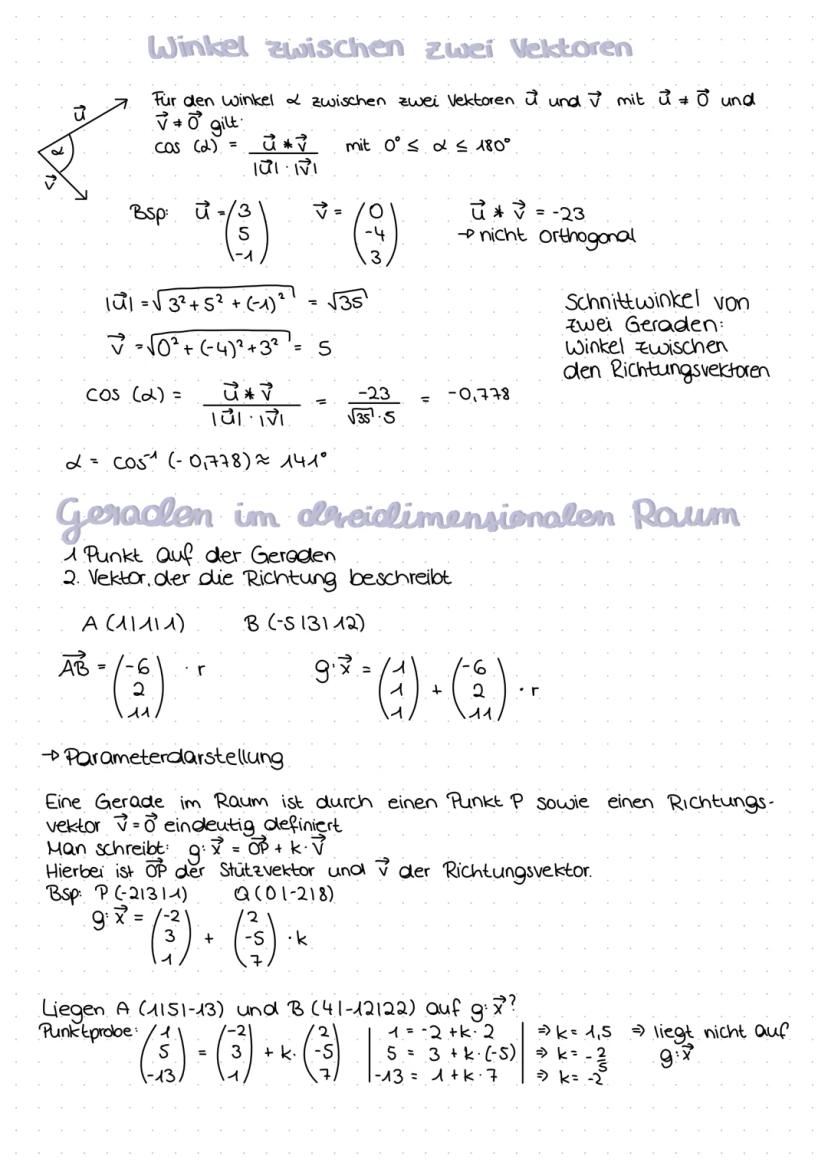 Winkel zwischen zwei Vektoren
Für den Winkel α zwischen zwei Vektoren u⃗ und v⃗ mit u⃗ ≠ 0⃗ und
v⃗ ≠ 0⃗ gilt:
cos (α) = (u⃗ * v⃗) / (|u⃗| · |v⃗|) mit 0° ≤ α ≤ 180°
u⃗
α
v⃗
Bsp: u⃗ = (3 5 -1) v⃗ = (0 -4 3) u⃗ * v⃗ = -23
→ nicht orthogonal
|u⃗| = √(3² + 5² + (-1)²) = √35
v⃗ = √(0² + (-4)² + 3²) = 5
Schnittwinkel von
zwei Geraden:
Winkel zwischen
den Richtungsvektoren
cos (α) = (u⃗ * v⃗) / (|u⃗| · |v⃗|) = -23 / (√35 · 5) = -0,778
α = cos⁻¹ (-0,778) ≈ 141°
Geraden im dreidimensionalen Raum
1 Punkt auf der Geraden
2. Vektor, der die Richtung beschreibt
A (1|1|1) B (-5|3|12)
AB⃗ = (-6 2 11) · r g: x⃗ = (1 1 1) + (-6 2 11) · r
→ Parameterdarstellung
Eine Gerade im Raum ist durch einen Punkt P sowie einen Richtungs-
vektor v⃗ = 0⃗ eindeutig definiert
Man schreibt: g: x⃗ = OP⃗ + k · v⃗
Hierbei ist OP⃗ der Stützvektor und v⃗ der Richtungsvektor.
Bsp: P (-2|3|1) Q (0|-2|8)
g: x⃗ = (-2 3 1) + (2 -5 7) · k
Liegen A (1|5|-13) und B (4|-12|22) auf g: x⃗?
Punktprobe: (1 5 -13) = (-2 3 1) + k · (2 -5 7) | 1 = -2 + k · 2 | ⇒ k = 1,5 ⇒ liegt nicht auf
5 = 3 + k · (-5) | ⇒ k = -2/5 g: x⃗
-13 = 1 + k · 7 | ⇒ k = -2